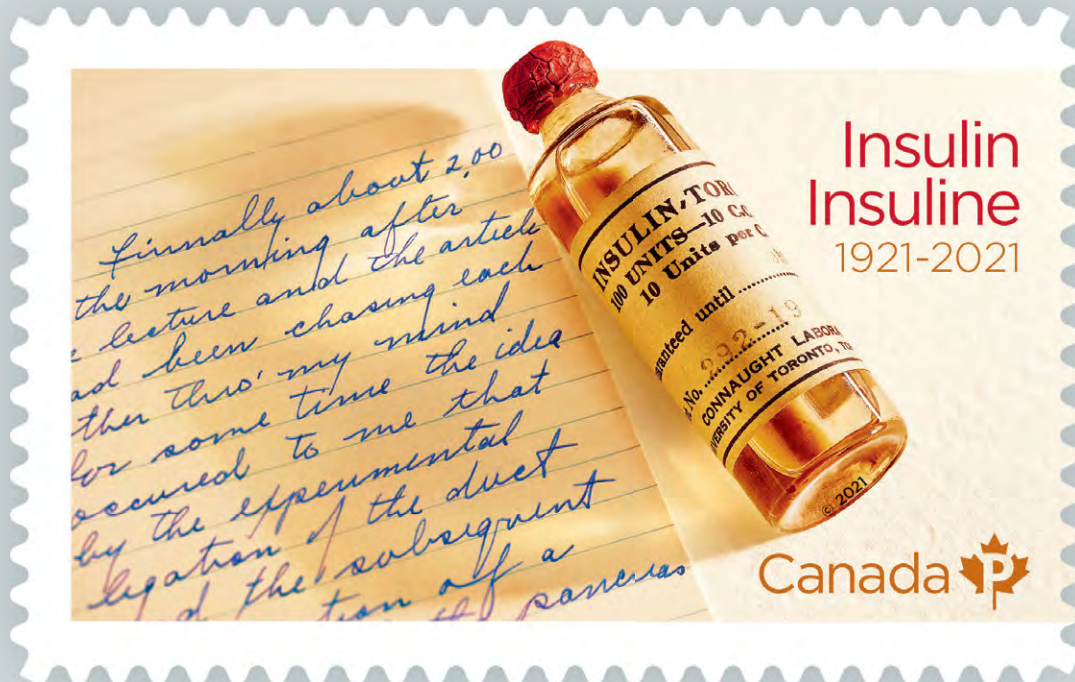 Finnally about 2,00
the morning after
lecture and the article
ad been chasing each
ther thro' my mind
for some time the idea
occured to me that
by the experimental
legation of the duct
d the subsequent
tion of a
pancreas
INSULIN, TORO
100 UNITS—10 C.C.
10 Units per C
aranteed until
No. 292-19
CONNAUGHT LABORA
VERSITY OF TORONTO, TO
© 2021
Insulin
Insuline
1921-2021
Canada P